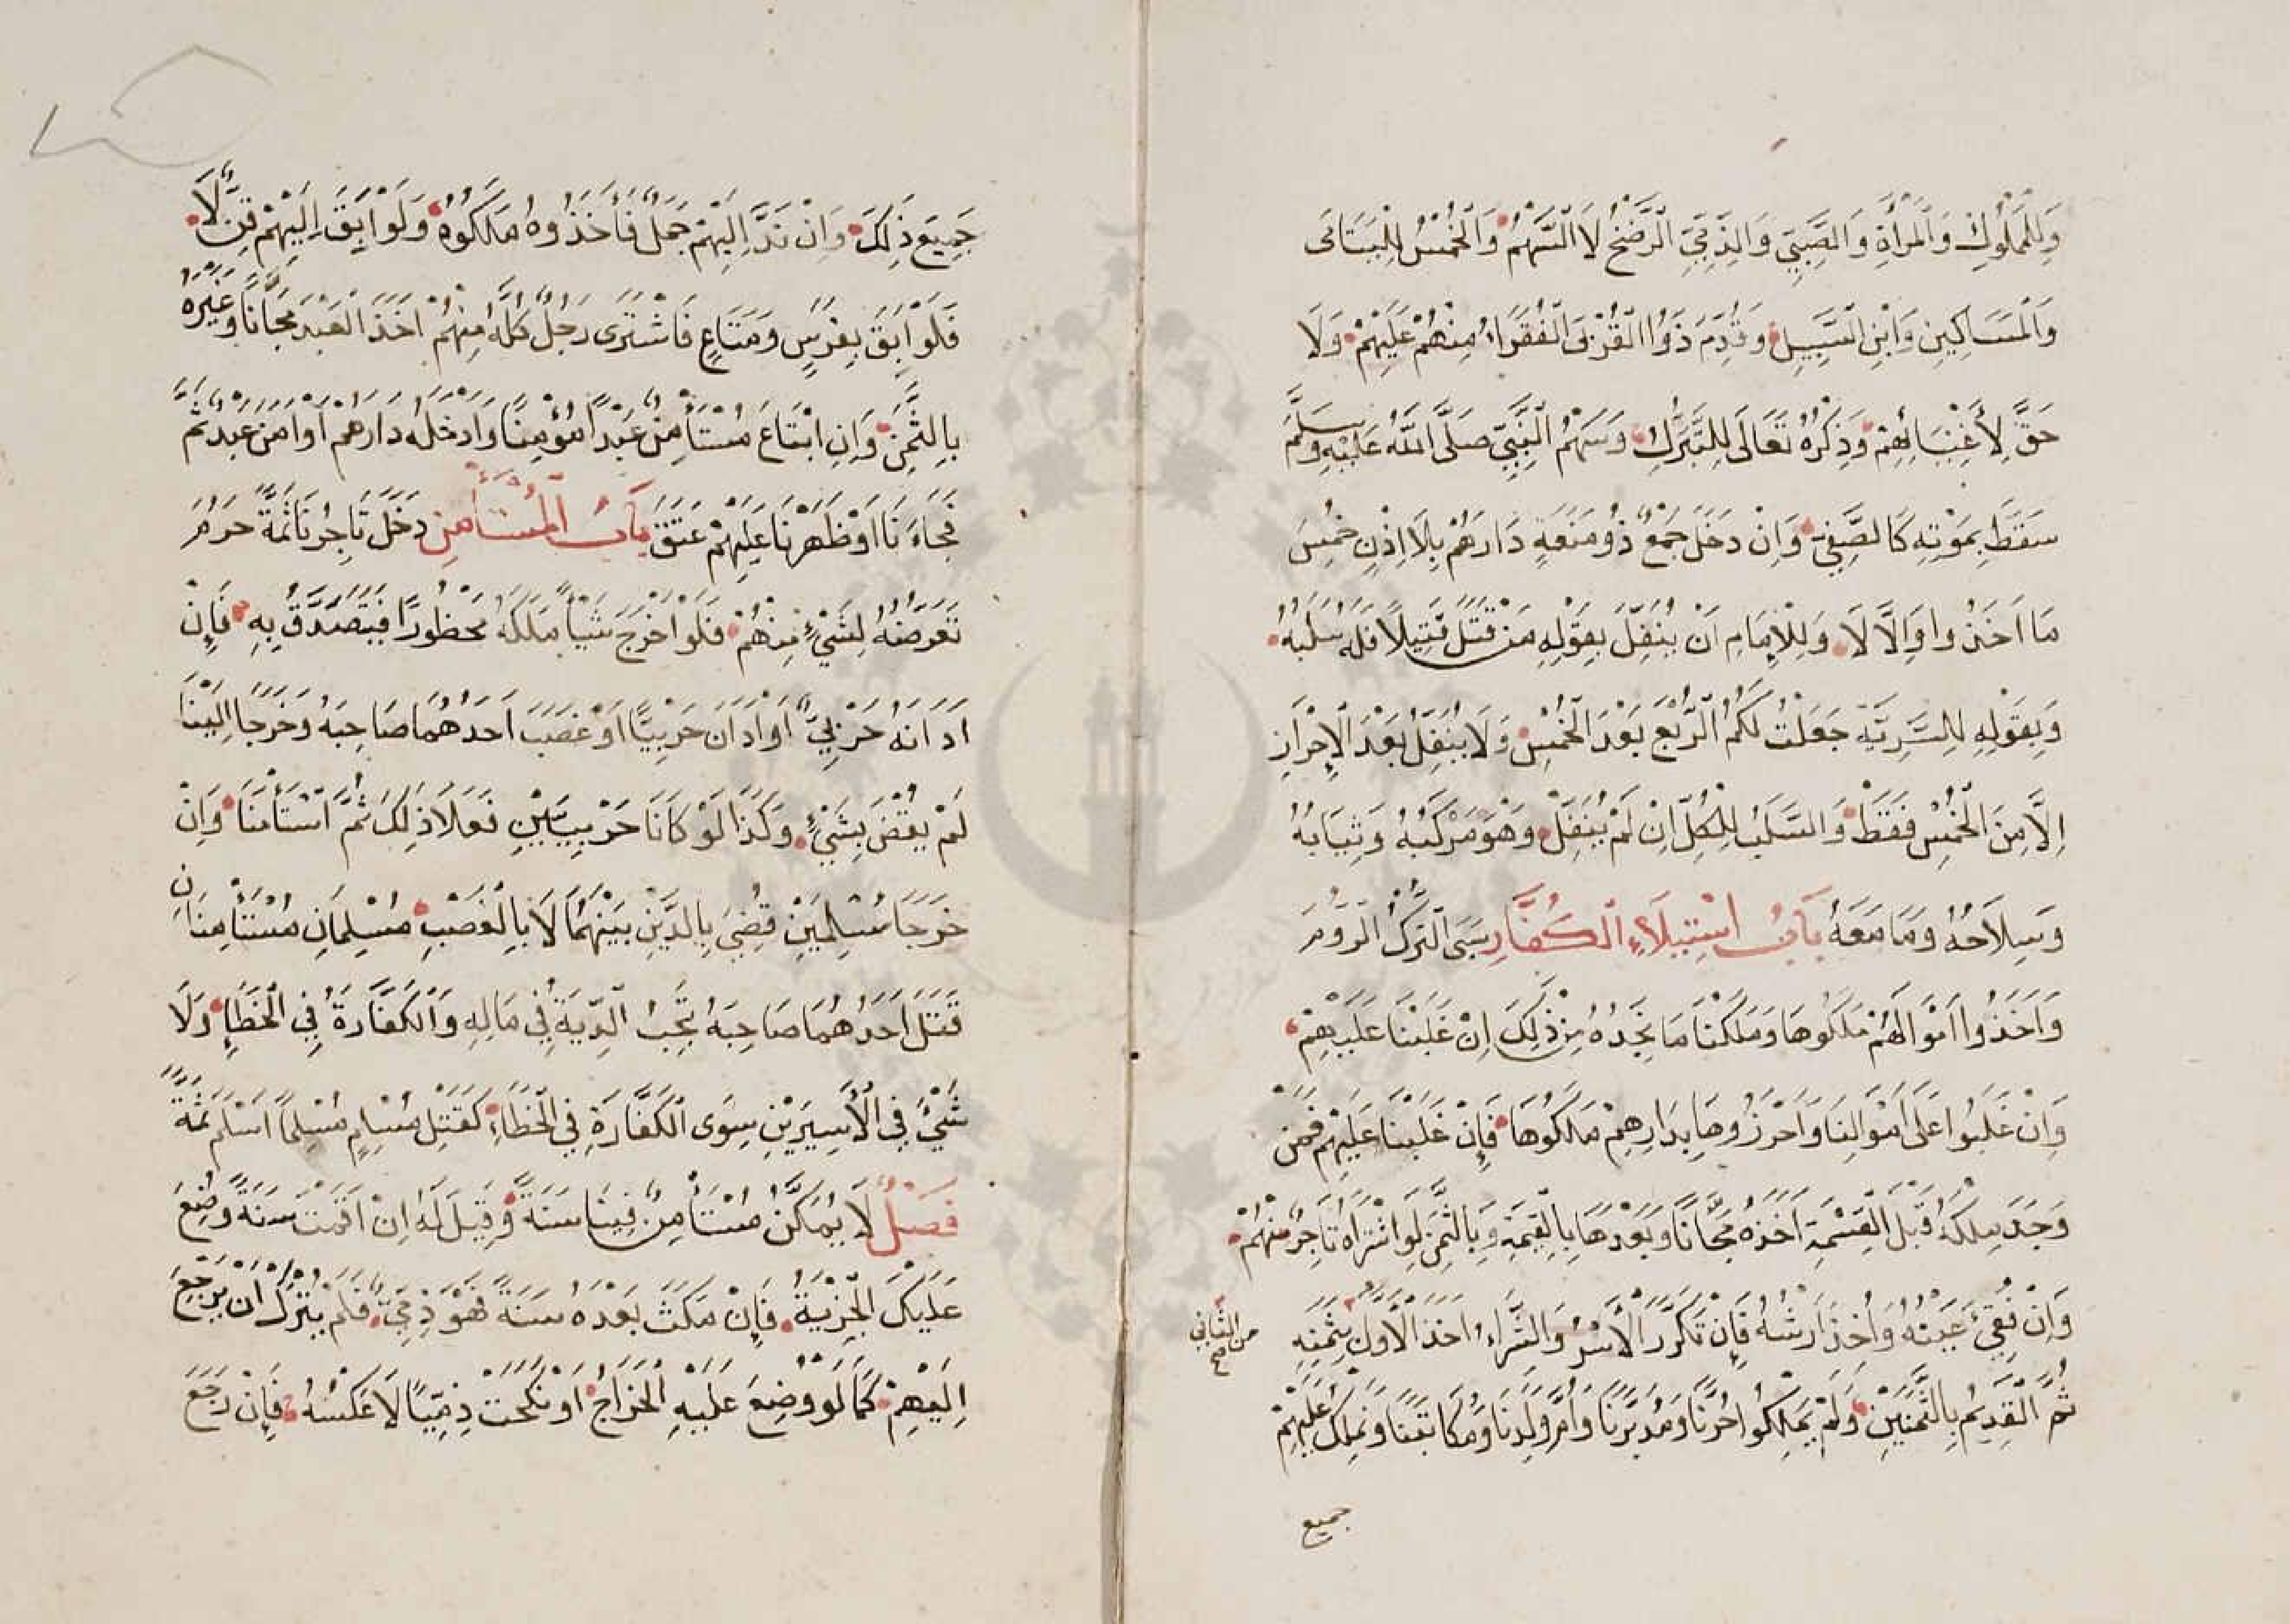 وَلِلْمَمْلُوكِ وَالْمَرْأَةِ وَالصَّبِيِّ وَالذِّمِّيِّ الرَّضْخُ لَا السَّهْمُ وَالْخُمْسُ لِلْيَتَامَى
وَالْمَسَاكِينِ وَابْنِ السَّبِيلِ وَقُدِّمَ ذَوُوا الْقُرْبَى الْفُقَرَاءُ مِنْهُمْ عَلَيْهِمْ وَلَا
حَقَّ لِأَغْنِيَائِهِمْ وَذِكْرُهُ تَعَالَى لِلتَّبَرُّكِ وَسَهْمُ النَّبِيِّ صَلَّى اللَّهُ عَلَيْهِ وَسَلَّمَ
سَقَطَ بِمَوْتِهِ كَالصَّفِيِّ وَاِنْ دَخَلَ جَمْعٌ ذُو مَنَعَةٍ دَارَهُمْ بِلَا اِذْنٍ خُمِسَ
مَا اَخَذُوا وَاِلَّا لَا وَلِلْإِمَامِ اَنْ يُنَفِّلَ بِقَوْلِهِ مَنْ قَتَلَ قَتِيلًا فَلَهُ سَلَبُهُ
وَبِقَوْلِهِ لِلسَّرِيَّةِ جَعَلْتُ لَكُمُ الرُّبْعَ بَعْدَ الْخُمْسِ وَلَا يُنَفِّلُ بَعْدَ الْإِحْرَازِ
اِلَّا مِنَ الْخُمْسِ فَقَطْ وَالسَّلَبُ لِلْكُلِّ اِنْ لَمْ يُنَفِّلْ وَهُوَ مَرْكَبُهُ وَثِيَابُهُ
وَسِلَاحُهُ وَمَا مَعَهُ بَابُ اسْتِيلَاءِ الْكُفَّارِ سَبَى التُّرْكُ الرُّومَ
وَاَخَذُوا اَمْوَالَهُمْ مَلَكُوهَا وَمَلَكْنَا مَا نَجِدُهُ مِنْ ذَلِكَ اِنْ غَلَبْنَا عَلَيْهِمْ
وَاِنْ غَلَبُوا عَلَى اَمْوَالِنَا وَاَحْرَزُوهَا بِدَارِهِمْ مَلَكُوهَا فَإِنْ غَلَبْنَا عَلَيْهِمْ فَمَنْ
وَجَدَ مِلْكَهُ قَبْلَ الْقِسْمَةِ اَخَذَهُ مَجَّانًا وَبَعْدَهَا بِالْقِيمَةِ وَبِالثَّمَنِ لَوِ اشْتَرَاهُ تَاجِرٌ مِنْهُمْ
وَاِنْ فُقِئَ عَيْنُهُ وَاُخِذَ اَرْشُهُ فَإِنْ تَكَرَّرَ الْأَسْرُ وَالشِّرَاءُ اَخَذَ الْأَوَّلُ بِثَمَنِهِ
من الثانى صح
ثُمَّ الْقَدِيمُ بِالثَّمَنَيْنِ وَلَمْ يَمْلِكُوا حُرَّنَا وَمُدَبَّرَنَا وَاُمَّ وَلَدِنَا وَمُكَاتَبَنَا وَنَمْلِكُ عَلَيْهِمْ
جميع
جَمِيعَ ذَلِكَ وَاِنْ نَدَّ اِلَيْهِمْ جَمَلٌ فَأَخَذُوهُ مَلَكُوهُ وَلَوْ اَبَقَ اِلَيْهِمْ قِنٌّ لَا
فَلَوْ اَبَقَ بِفَرَسٍ وَمَتَاعٍ فَاشْتَرَى رَجُلٌ كُلَّهُ مِنْهُمْ اَخَذَ الْعَبْدَ مَجَّانًا وَغَيْرَهُ
بِالثَّمَنِ وَاِنِ ابْتَاعَ مُسْتَأْمِنٌ عَبْدًا مُؤْمِنًا وَاَدْخَلَهُ دَارَهُمْ اَوْ اٰمَنَ عَبْدٌ ثَمَّ
فَجَاءَنَا اَوْ ظَهَرْنَا عَلَيْهِمْ عَتَقَ بَابُ الْمُسْتَأْمِنِ دَخَلَ تَاجِرُنَا ثَمَّةَ حَرُمَ
تَعَرُّضُهُ لِشَيْءٍ مِنْهُمْ فَلَوْ اَخْرَجَ شَيْأً مَلَكَهُ مَحْظُورًا فَيَتَصَدَّقُ بِهِ فَإِنْ
اَدَانَهُ حَرْبِيٌّ اَوْ اَدَانَ حَرْبِيًّا اَوْ غَصَبَ اَحَدُهُمَا صَاحِبَهُ وَخَرَجَا اِلَيْنَا
لَمْ يُقْضَ بِشَيْءٍ وَكَذَا لَوْ كَانَا حَرْبِيَّيْنِ فَعَلَا ذَلِكَ ثُمَّ اسْتَأْمَنَا وَاِنْ
خَرَجَا مُسْلِمَيْنِ قُضِىَ بِالدَّيْنِ بَيْنَهُمَا لَا بِالْغَصْبِ مُسْلِمَانِ مُسْتَأْمِنَانِ
قَتَلَ اَحَدُهُمَا صَاحِبَهُ تَجِبُ الدِّيَةُ فِي مَالِهِ وَالْكَفَّارَةُ فِي الْخَطَإِ وَلَا
شَيْئَ فِي الْأَسِيرَيْنِ سِوَى الْكَفَّارَةِ فِي الْخَطَاءِ كَقَتْلِ مُسْلِمٍ مُسْلِمًا اَسْلَمَ ثَمَّةَ
فَصْلٌ لَا يُمَكَّنُ مُسْتَأْمِنٌ فِينَا سَنَةً وَقِيلَ لَهُ اِنْ اَقَمْتَ سَنَةً وُضِعَ
عَلَيْكَ الْجِزْيَةُ فَإِنْ مَكَثَ بَعْدَهُ سَنَةً فَهُوَ ذِمِّيٌّ فَلَمْ يُتْرَكْ اَنْ يَرْجِعَ
اِلَيْهِمْ كَمَا لَوْ وُضِعَ عَلَيْهِ الْخَرَاجُ اَوْ نَكَحَتْ ذِمِّيًّا لَا عَكْسُهُ فَإِنْ رَجَعَ